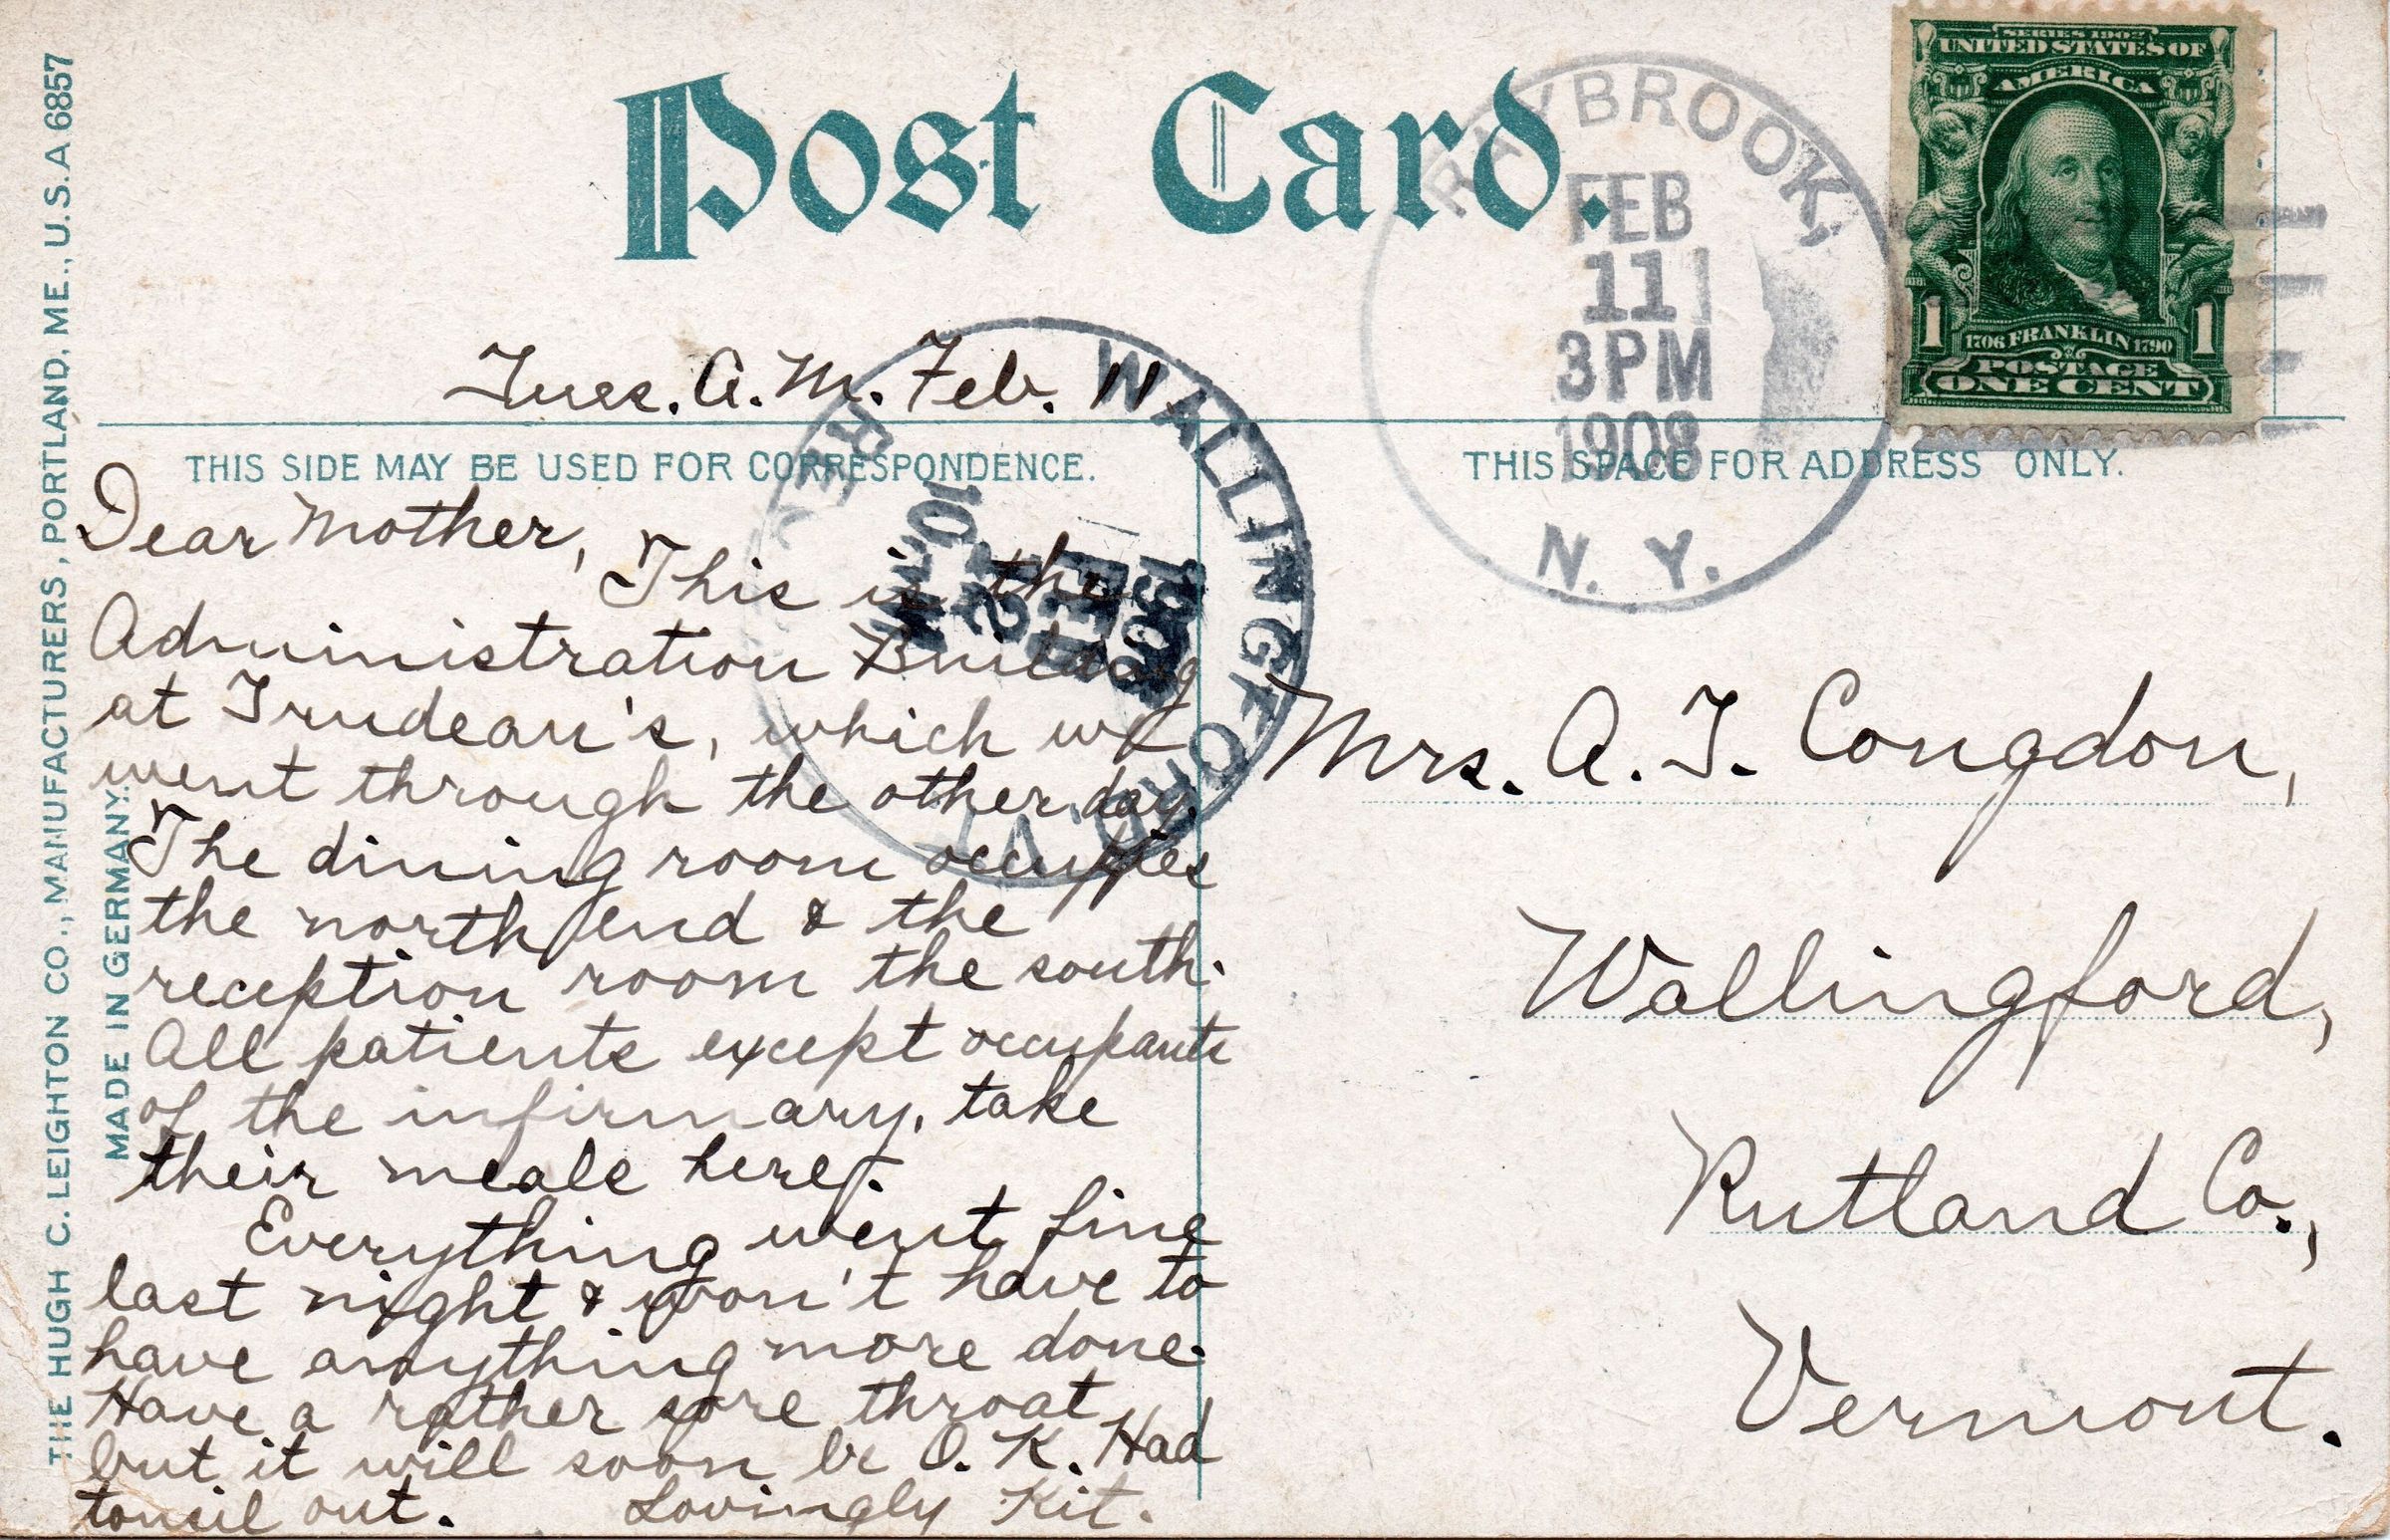 Post Card.
THE HUGH C. LEIGHTON CO., MANUFACTURERS, PORTLAND, ME., U.S.A 6857
MADE IN GERMANY.
RAYBROOK,
FEB
11
3 PM
1908
N. Y.
SERIES 1902
UNITED STATES OF
AMERICA
1706 FRANKLIN 1790
1 1
POSTAGE
ONE CENT
WALLINGFORD, VT.
REC'D
1908
FEB
12
10-AM
Tues. A.M. Feb. 11
THIS SIDE MAY BE USED FOR CORRESPONDENCE.
Dear Mother,
This is the
Administration Building
at Trudeau's, which we
went through the other day.
The dining room occupies
the north end & the
reception room the south.
All patients except occupants
of the infirmary, take
their meals here.
Everything went fine
last night & won't have to
have anything more done.
Have a rather sore throat
but it will soon be O.K. Had
tonsil out. Lovingly Kit.
THIS SPACE FOR ADDRESS ONLY.
Mrs. A. T. Congdon,
Wallingford,
Rutland Co.,
Vermont.